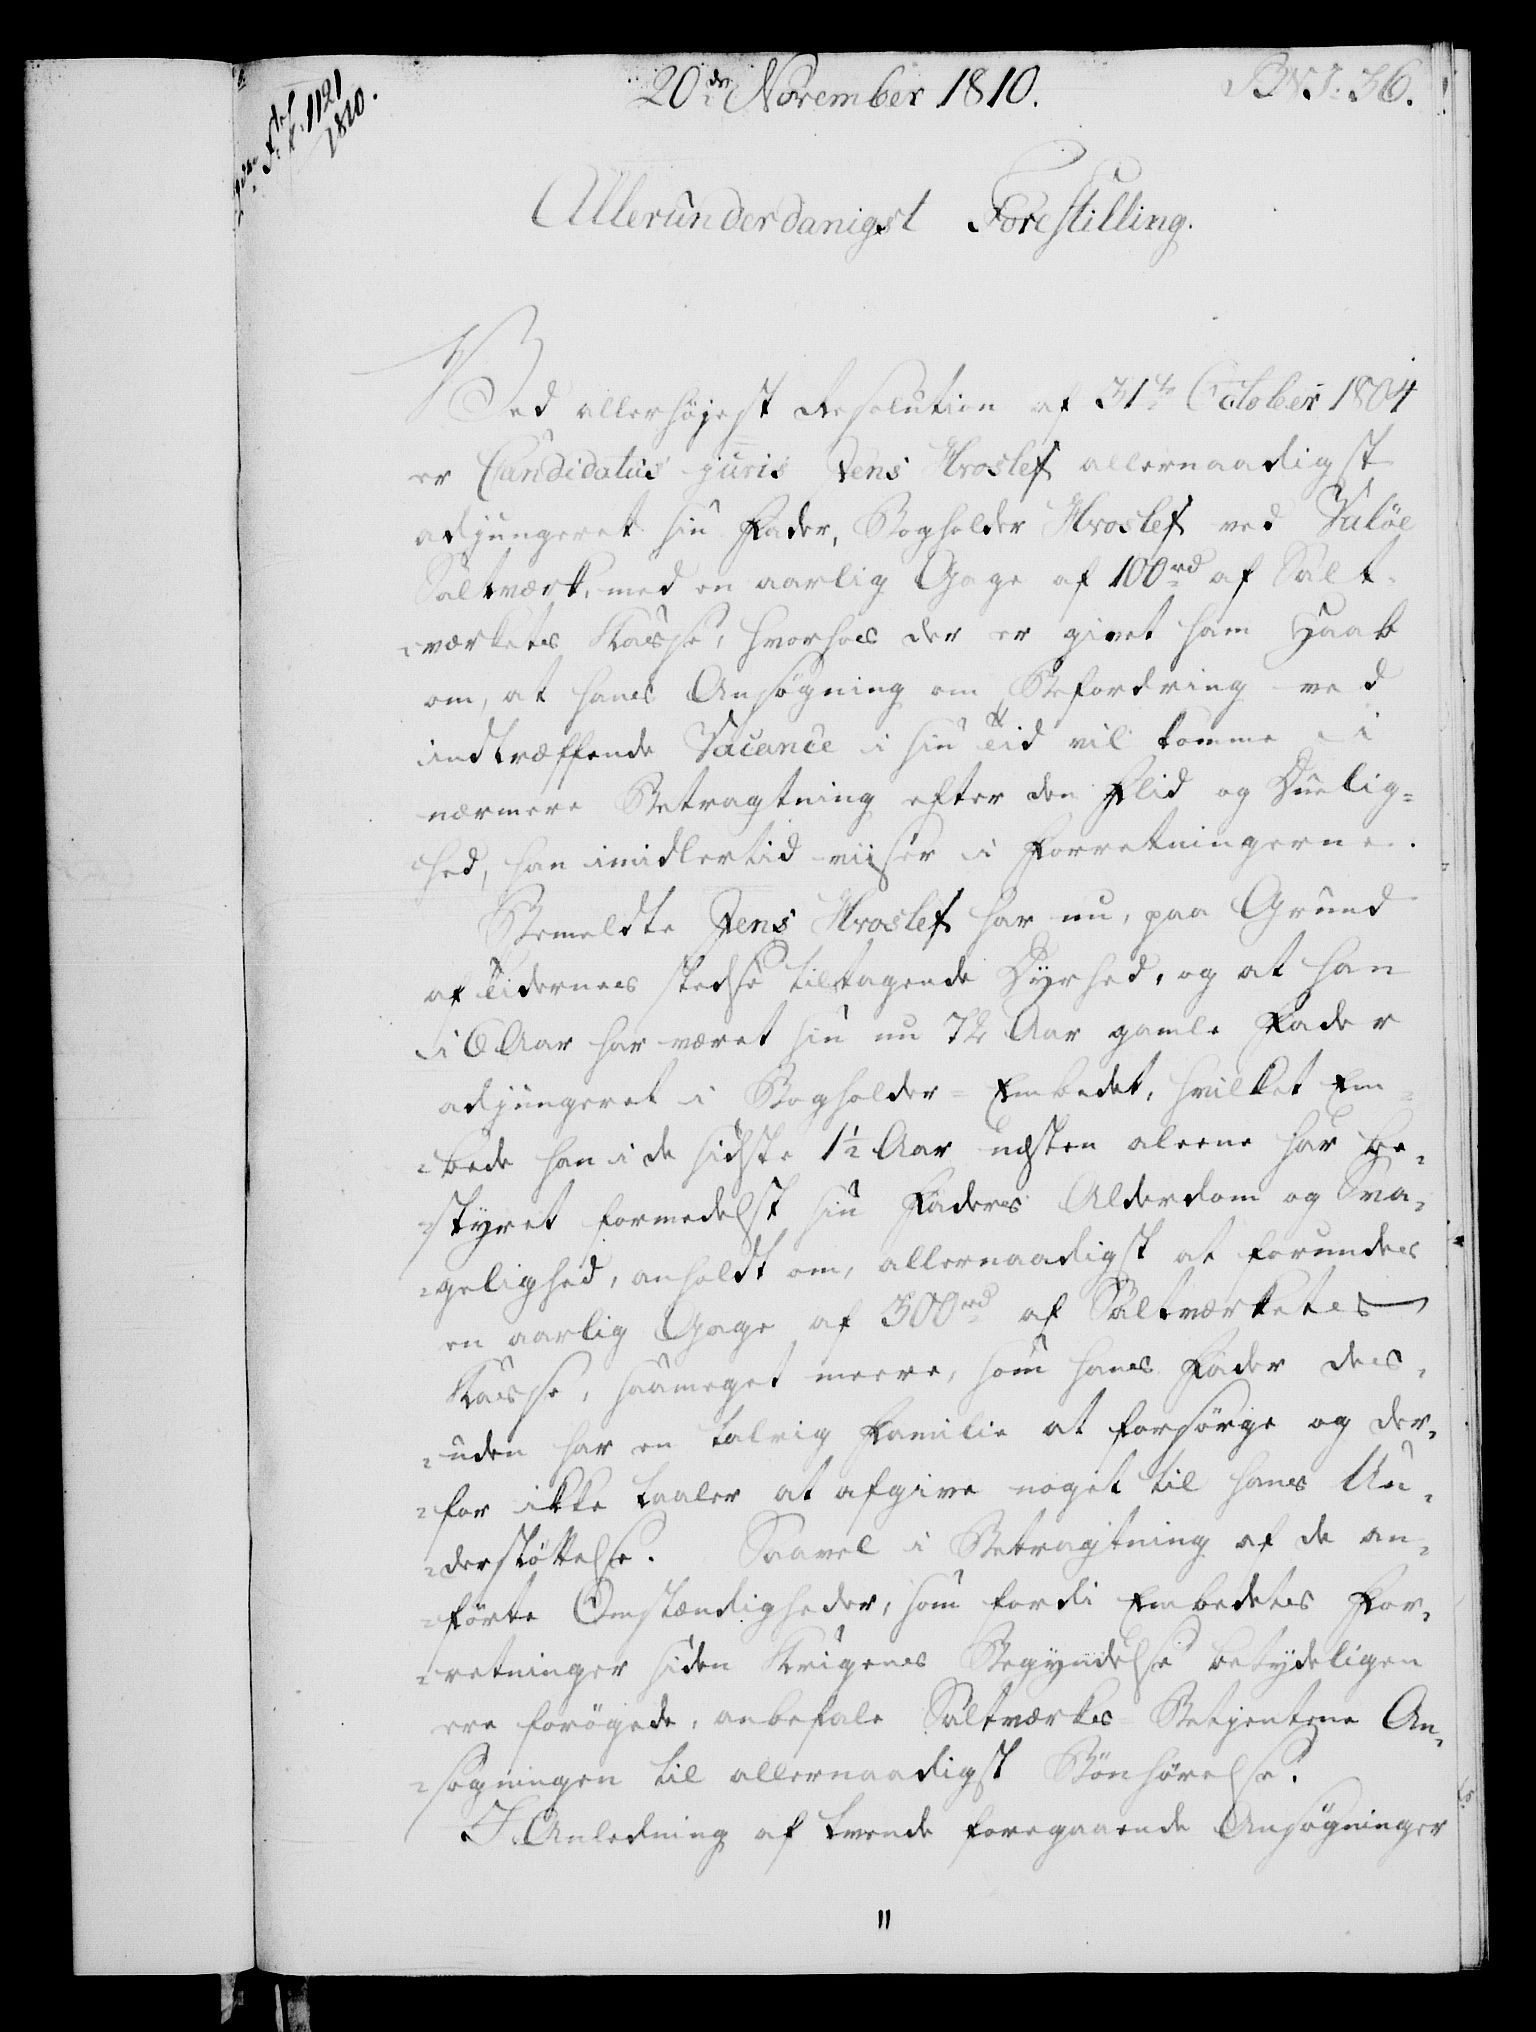 20de November 1810.
B N I. 36.
1121
1810.
Allerunderdanigst Forestilling.
Ved allerhöjest Resolution af 31te October 1804
er Candidatus juris Jens Hroslef allernaadigst
adjungeret sin Fader, Bogholder Hroslef ved Valöe
Saltværk, med en aarlig Gage af 100rd af Salt-
værkets Kasse, hvorhos der er givet ham Haab
om, at hans Ansögning om Befordring ved
indtræffende Vacance i sin Tid vil komme i
nærmere Betragtning efter den Flid og Duelig-
hed, han imidlertid viiser i Forretningerne.
Bemeldte Jens Hroslef har nu, paa Grund
af Tidernes stedse tiltagende Dyrhed, og at han
i 6 Aar har været sin nu 72 Aar gamle Fader
adjungeret i Bogholder-Embedet, hvilket Em-
bede han i de sidste 1½ Aar næsten aleene har be-
styret formedelst sin Faders Alderdom og Sva-
gelighed, anholdt om, allernaadigst at forundes
en aarlig Gage af 300rd af Saltværkets
Kasse, saameget meere, som hans Fader des-
uden har en talrig Familie at forsörge og der-
for ikke taaler at afgive noget til hans Un-
derstöttelse. Saavel i Betragtning af de an-
förte Omstændigheder, som fordi Embedets For-
retninger siden Krigens Begyndelse betydeligen
ere forögede, anbefale Saltværks Betjentene An-
sögningen til allernaadigst Bönhörelse.
I Anledning af tvende foregaaende Ansögninger
11